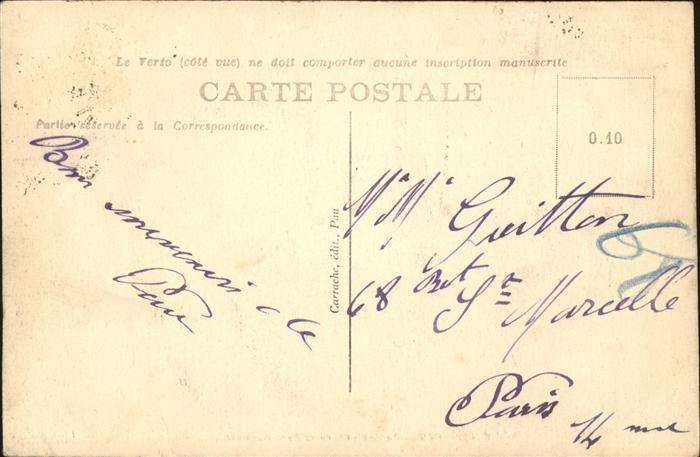 Le Verso (côté vue) ne doit comporter aucune inscription manuscrite
CARTE POSTALE
Partie réservée à la Correspondance.
0.10
Bon souvenir
Carrache, édit., Pau
Guitton
68 St Marcelle
Paris 14